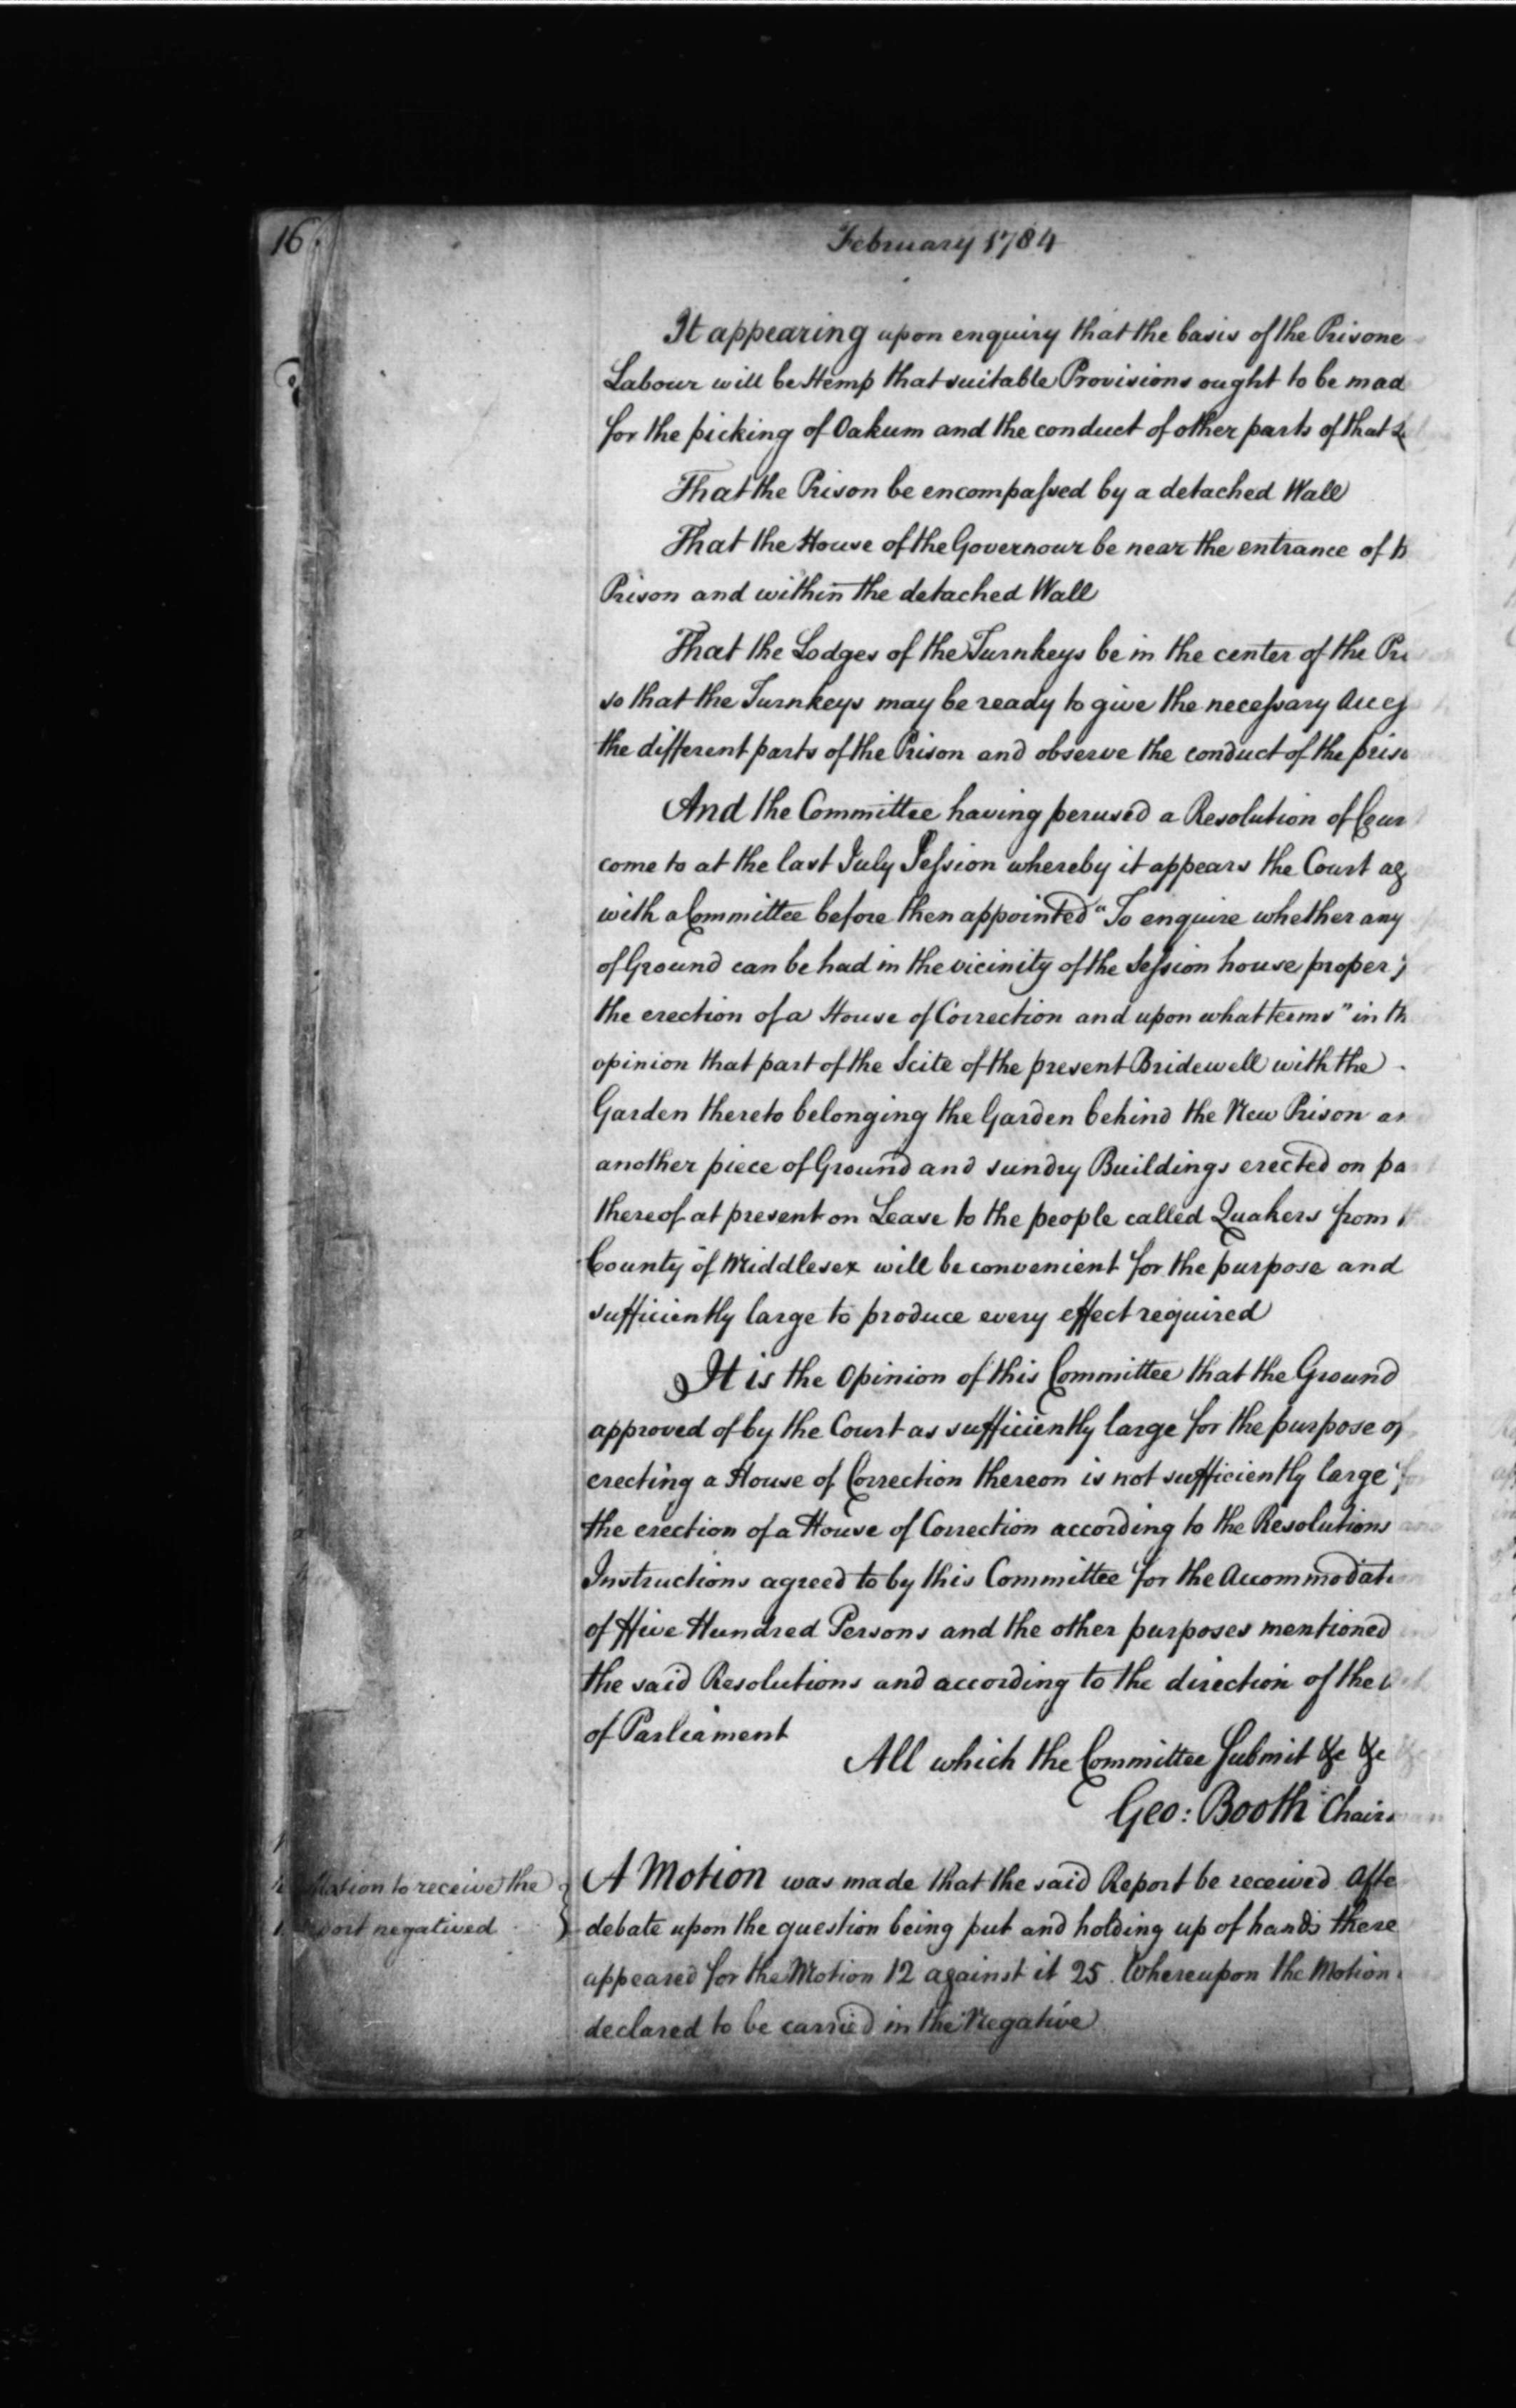 16
February 1784
It appearing upon enquiry that the basis of the Prisone
Labour will be Hemp that suitable Provisions ought to be mad
for the picking of Oakum and the conduct of other parts of that
That the Prison be encompassed by a detached Wall
That the House of the Governour be near the entrance of
Prison and within the detached Wall
That the Lodges of the Turnkeys be in the center of the Pri
so that the Turnkeys may be ready to give the necessary
the different parts of the Prison and observe the conduct of the priso
And the Committee having perused a Resolution of Cour
come to at the last July Session whereby it appears the Court ag
with a Committee before then appointed "To enquire whether any
of Ground can be had in the vicinity of the Session house proper
the erection of a House of Correction and upon what terms" in th
opinion that part of the Scite of the present Bridewell with the
Garden thereto belonging the Garden behind the New Prison an
another piece of Ground and sundry Buildings erected on pa
thereof at present on Lease to the people called Quakers from
County of Middlesex will be convenient for the purpose and
sufficiently large to produce every effect required
It is the Opinion of this Committee that the Ground
approved of by the Court as sufficiently large for the purpose of
erecting a House of Correction thereon is not sufficiently large
the erection of a House of Correction according to the Resolutions
Instructions agreed to by this Committee for the Accommodati
of ffive Hundred Persons and the other purposes mentioned
the said Resolutions and according to the direction of the
of Parliament
All which the Committee Submit &c &c
Geo: Booth Chairman
Motion to receive the
port negatived
A Motion was made that the said Report be received Afte
debate upon the question being put and holding up of hands there
appeared for the Motion 12 against it 25. Whereupon the Motion
declared to be carried in the Negative